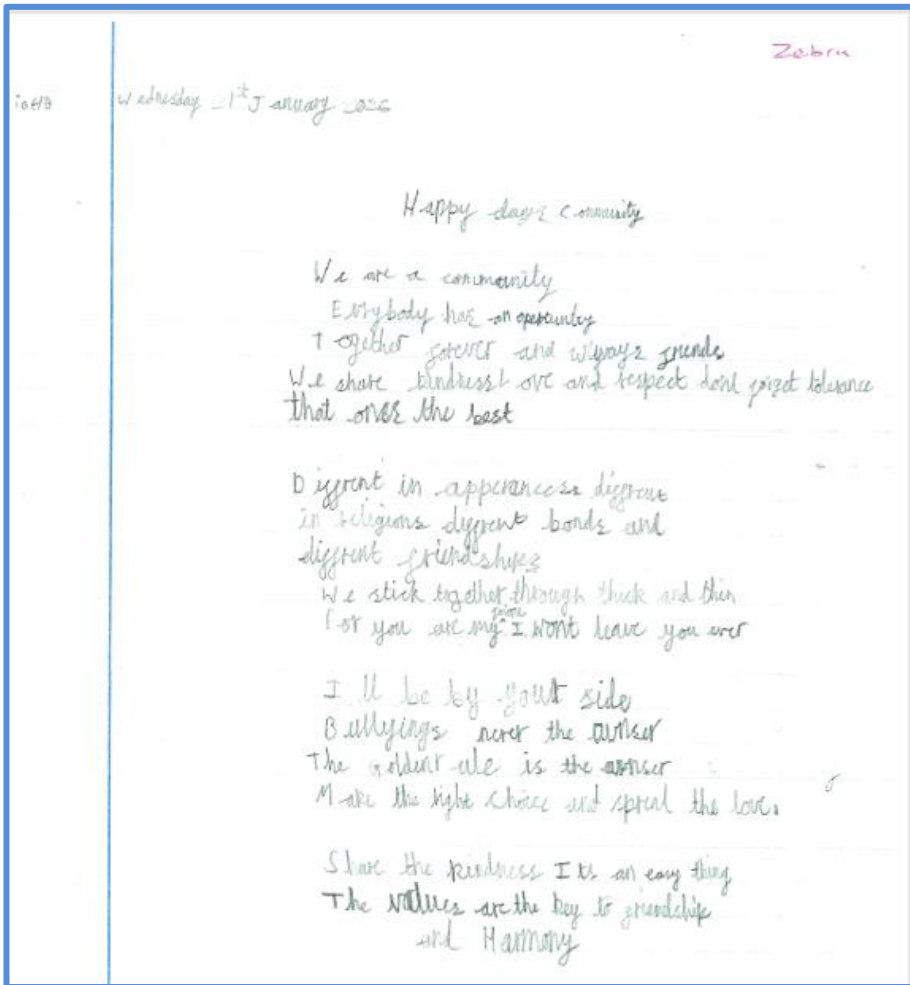 Zebra
Wednesday 21st January 2026
Happy days Community
We are a community
Evrybody has an opertunity
Together forever and always friends
We share kindness Love and respect dont forget tolerance
that ones the best
Diffrent in apperancess diffrent
in religions diffrent bonds and
diffrent friendships
We stick together through thick and thin
For you are my I wont leave you ever
I ll be by your side
Bullyings never the awnser
The Goldent ule is the awnser
Make the right choice and spread the love.
Share the kindness Its an easy thing
The values are the key to friendship
and Harmony